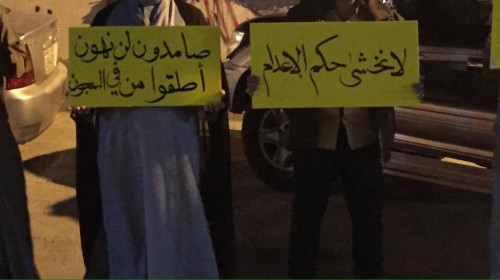 لا نخشى حكم الاعدام
صامدون لن نهون
أطلقوا من في السجون